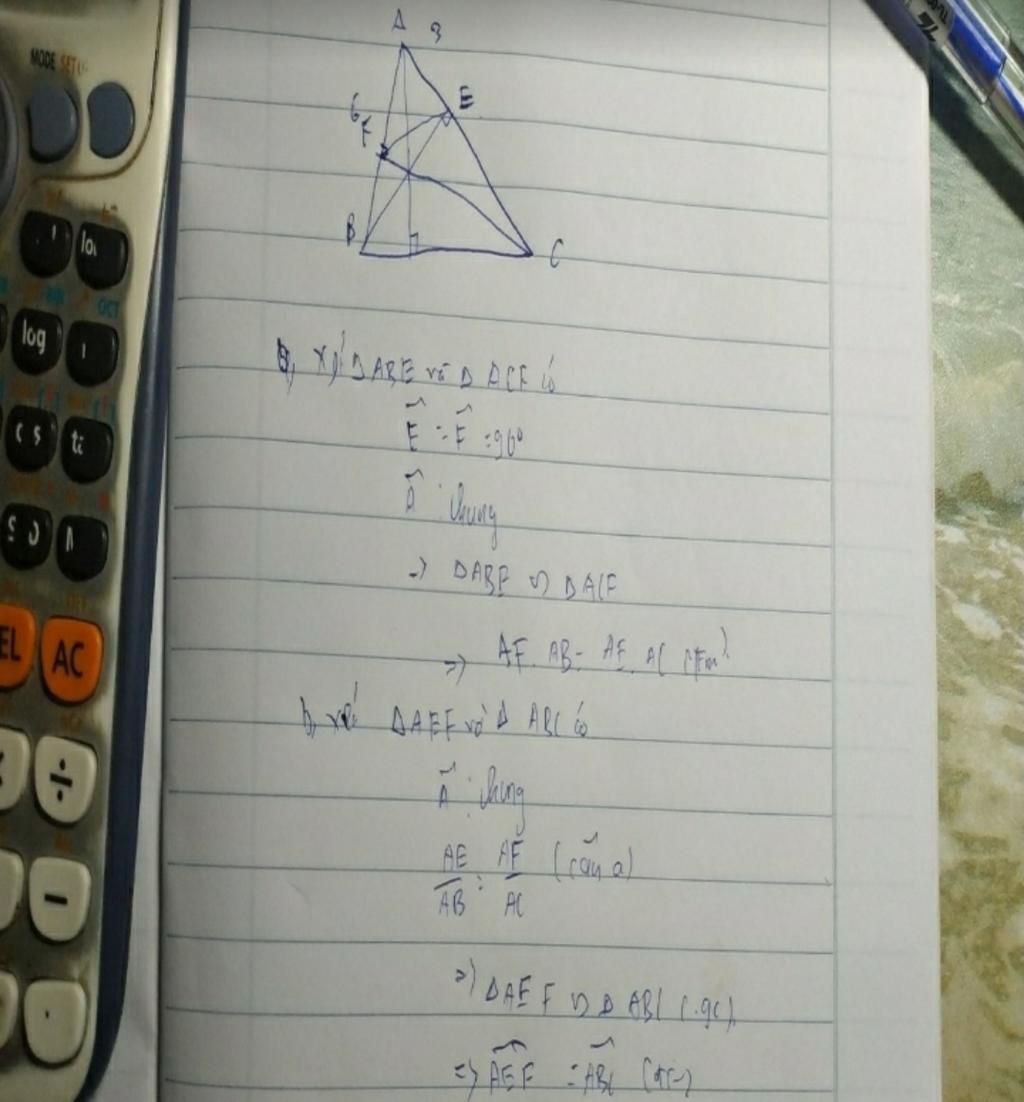 MODE SETU
A 3
E
6
F
B
C
log
OCT
EL
AC
÷
−
.
a, xét Δ ABE và Δ ACF có
Ê = F̂ = 90°
Â : chung
=> ΔABE ∽ ΔACF
=> AF. AB = AE. AC (đpcm)
b, xét ΔAEF và Δ ABC có
Â : chung
AE/AB = AF/AC (câu a)
=> ΔAEF ∽ Δ ABC (c.g.c)
=> AEF = ABC